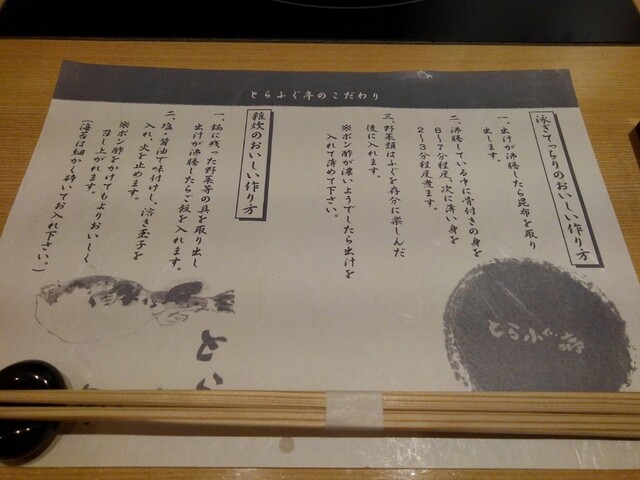 とらふぐ亭のこだわり
泳ぎてっちりのおいしい作り方
一、出汁が沸騰したら昆布を取り
出します。
二、沸騰している中に骨付きの身を
6〜7分程度、次に薄い身を
2〜3分程度煮ます。
三、野菜類はふぐを存分に楽しんだ
後に入れます。
※ポン酢が濃いようでしたら出汁を
入れて薄めて下さい。
雑炊のおいしい作り方
一、鍋に残った野菜等の具を取り出し
出汁が沸騰したらご飯を入れます。
二、塩・醤油で味付けし、溶き玉子を
入れ、火を止めます。
※ポン酢をかけてもよりおいしく
召し上がれます。
（海苔は細かく砕いてお入れ下さい。）
とらふぐ亭
とら